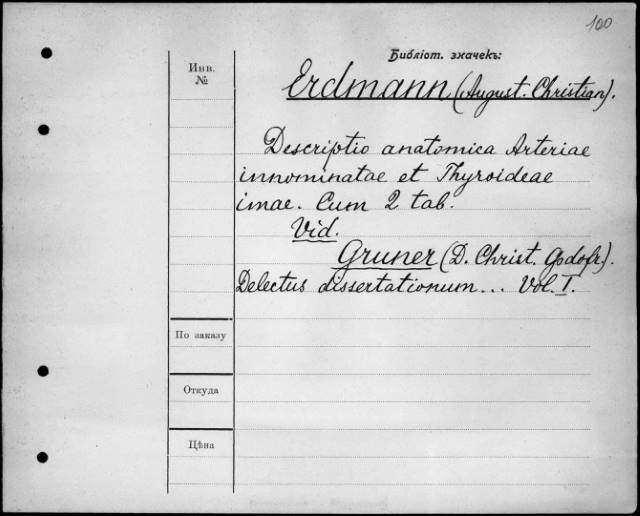 100
Библіот. значекъ:
Инв.
№
Erdmann (August. Christian).
Descriptio anatomica Arteriae
innominatae et Thyroideae
imae. Cum 2 tab.
Vid.
Gruner (D. Christ. Godofr.).
Delectus dissertationum... Vol. I.
По заказу
Откуда
Цѣна